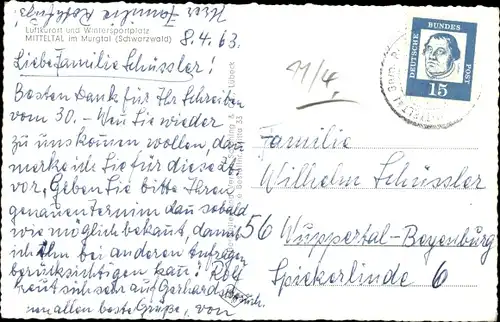 Ihrer Familie
Luftkurort und Wintersportplatz
MITTELTAL im Murgtal (Schwarzwald)
8.4.63.
Liebe Familie Schüssler!
Besten Dank für Ihr Schreiben
vom 30. - Wen Sie wieder
zu uns komen wollen, dan
merke ich Sie für diese Zeit
vor, Geben Sie bitte Ihren
genauen Termin dan sobald
wie möglich bekant, damit
ich Ihn bei anderen Anfragen
berücksichtigen kan. Rolf
freut sich sehr auf Gerhards Besuch.
Ihnen allen beste Grüße, von
11/4
DEUTSCHE BUNDES POST
15
Familie
Wilhelm Schüssler
56 Wuppertal-Beyenburg
Spiekerlinde 6